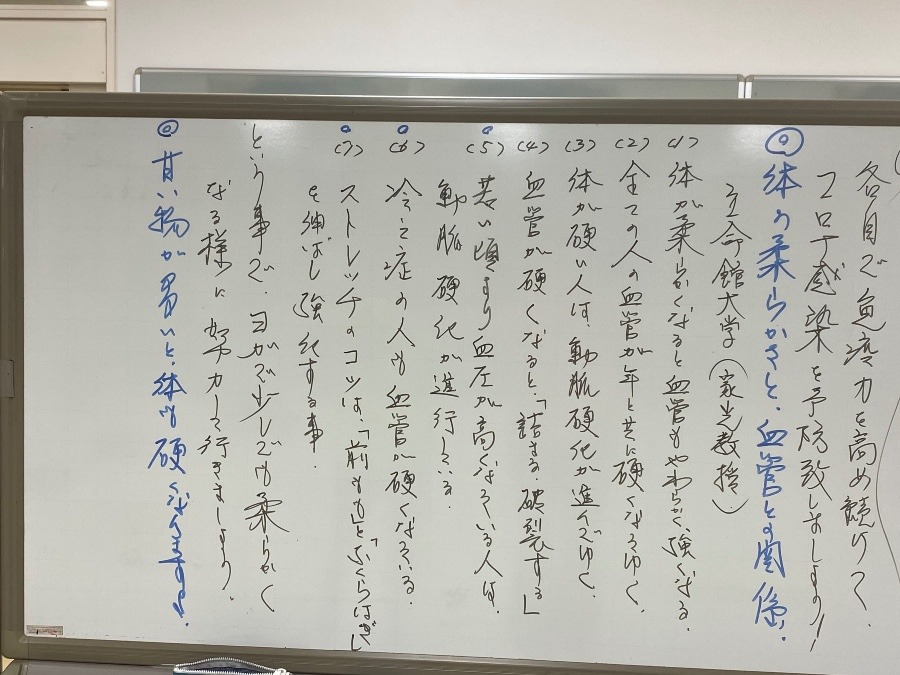 各自で免疫力を高め続けて、
コロナ感染を予防致しましょう!
◎体の柔らかさと、血管との関係.
立命館大学(家光教授)
(1)体が柔らかくなると血管もやわらかく、強くなる.
(2)全ての人の血管が年と共に硬くなるゆく.
(3)体が硬い人は、動脈硬化が進んでゆく.
(4)血管が硬くなると、「詰まる、破裂する」
(5)若い頃より血圧が高くなっている人は、
動脈硬化が進行している.
(6)冷え症の人も血管が硬くなっている.
(7)ストレッチのコツは、「前もも」と「ふくらはぎ」
を伸ばし強化する事.
という事で、ヨガで少しでも柔らかく
なる様に努力して行きましょう.
◎甘い物が多いと、体も硬くなりますよ!